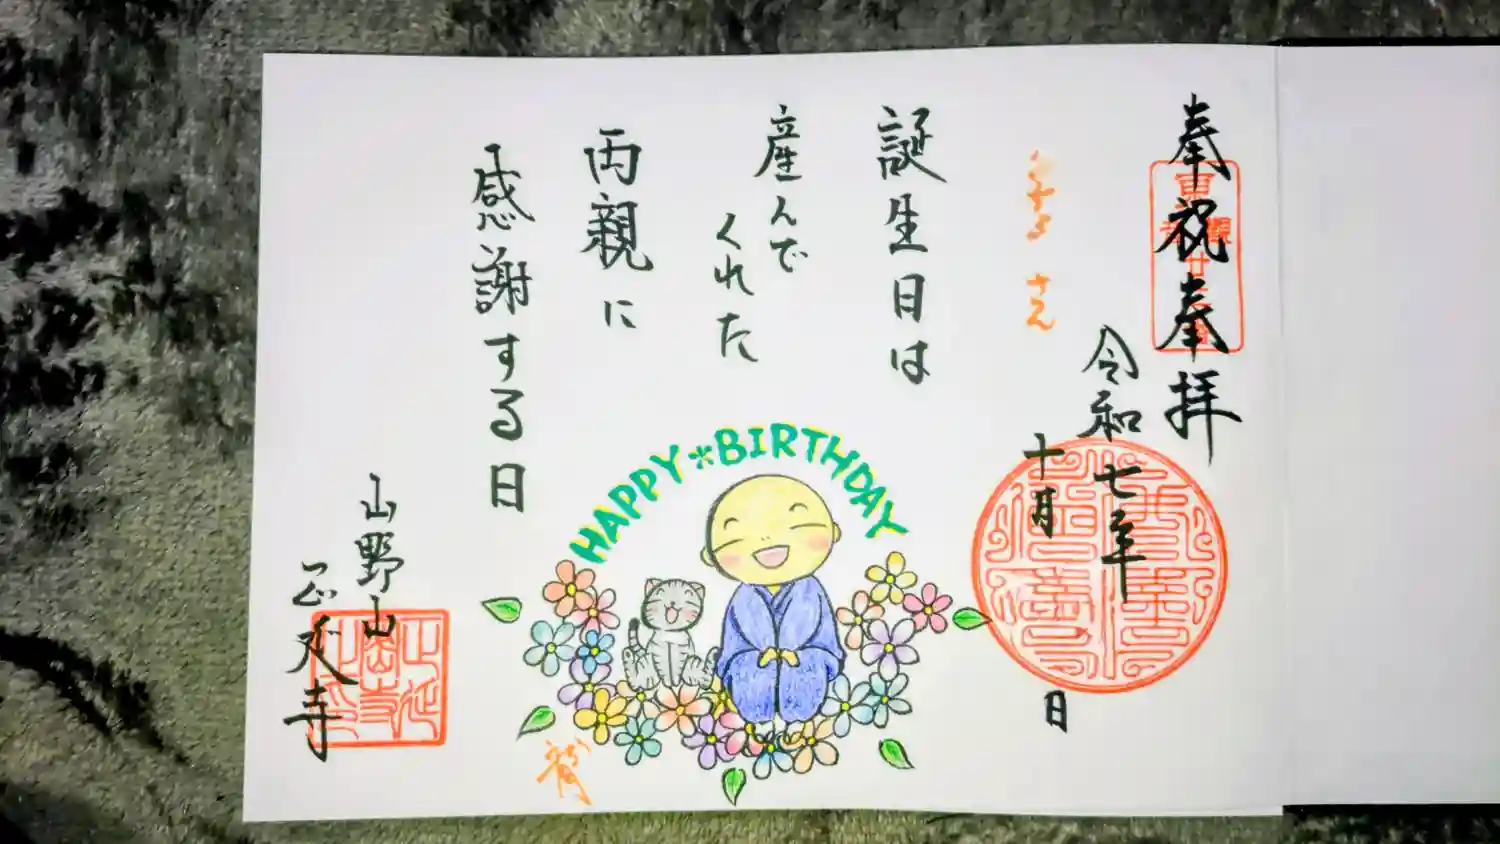 奉祝奉拝
令和七年
十月 日
さん
誕生日は
産んで
くれた
両親に
感謝する日
HAPPY*BIRTHDAY
山野山
正延寺